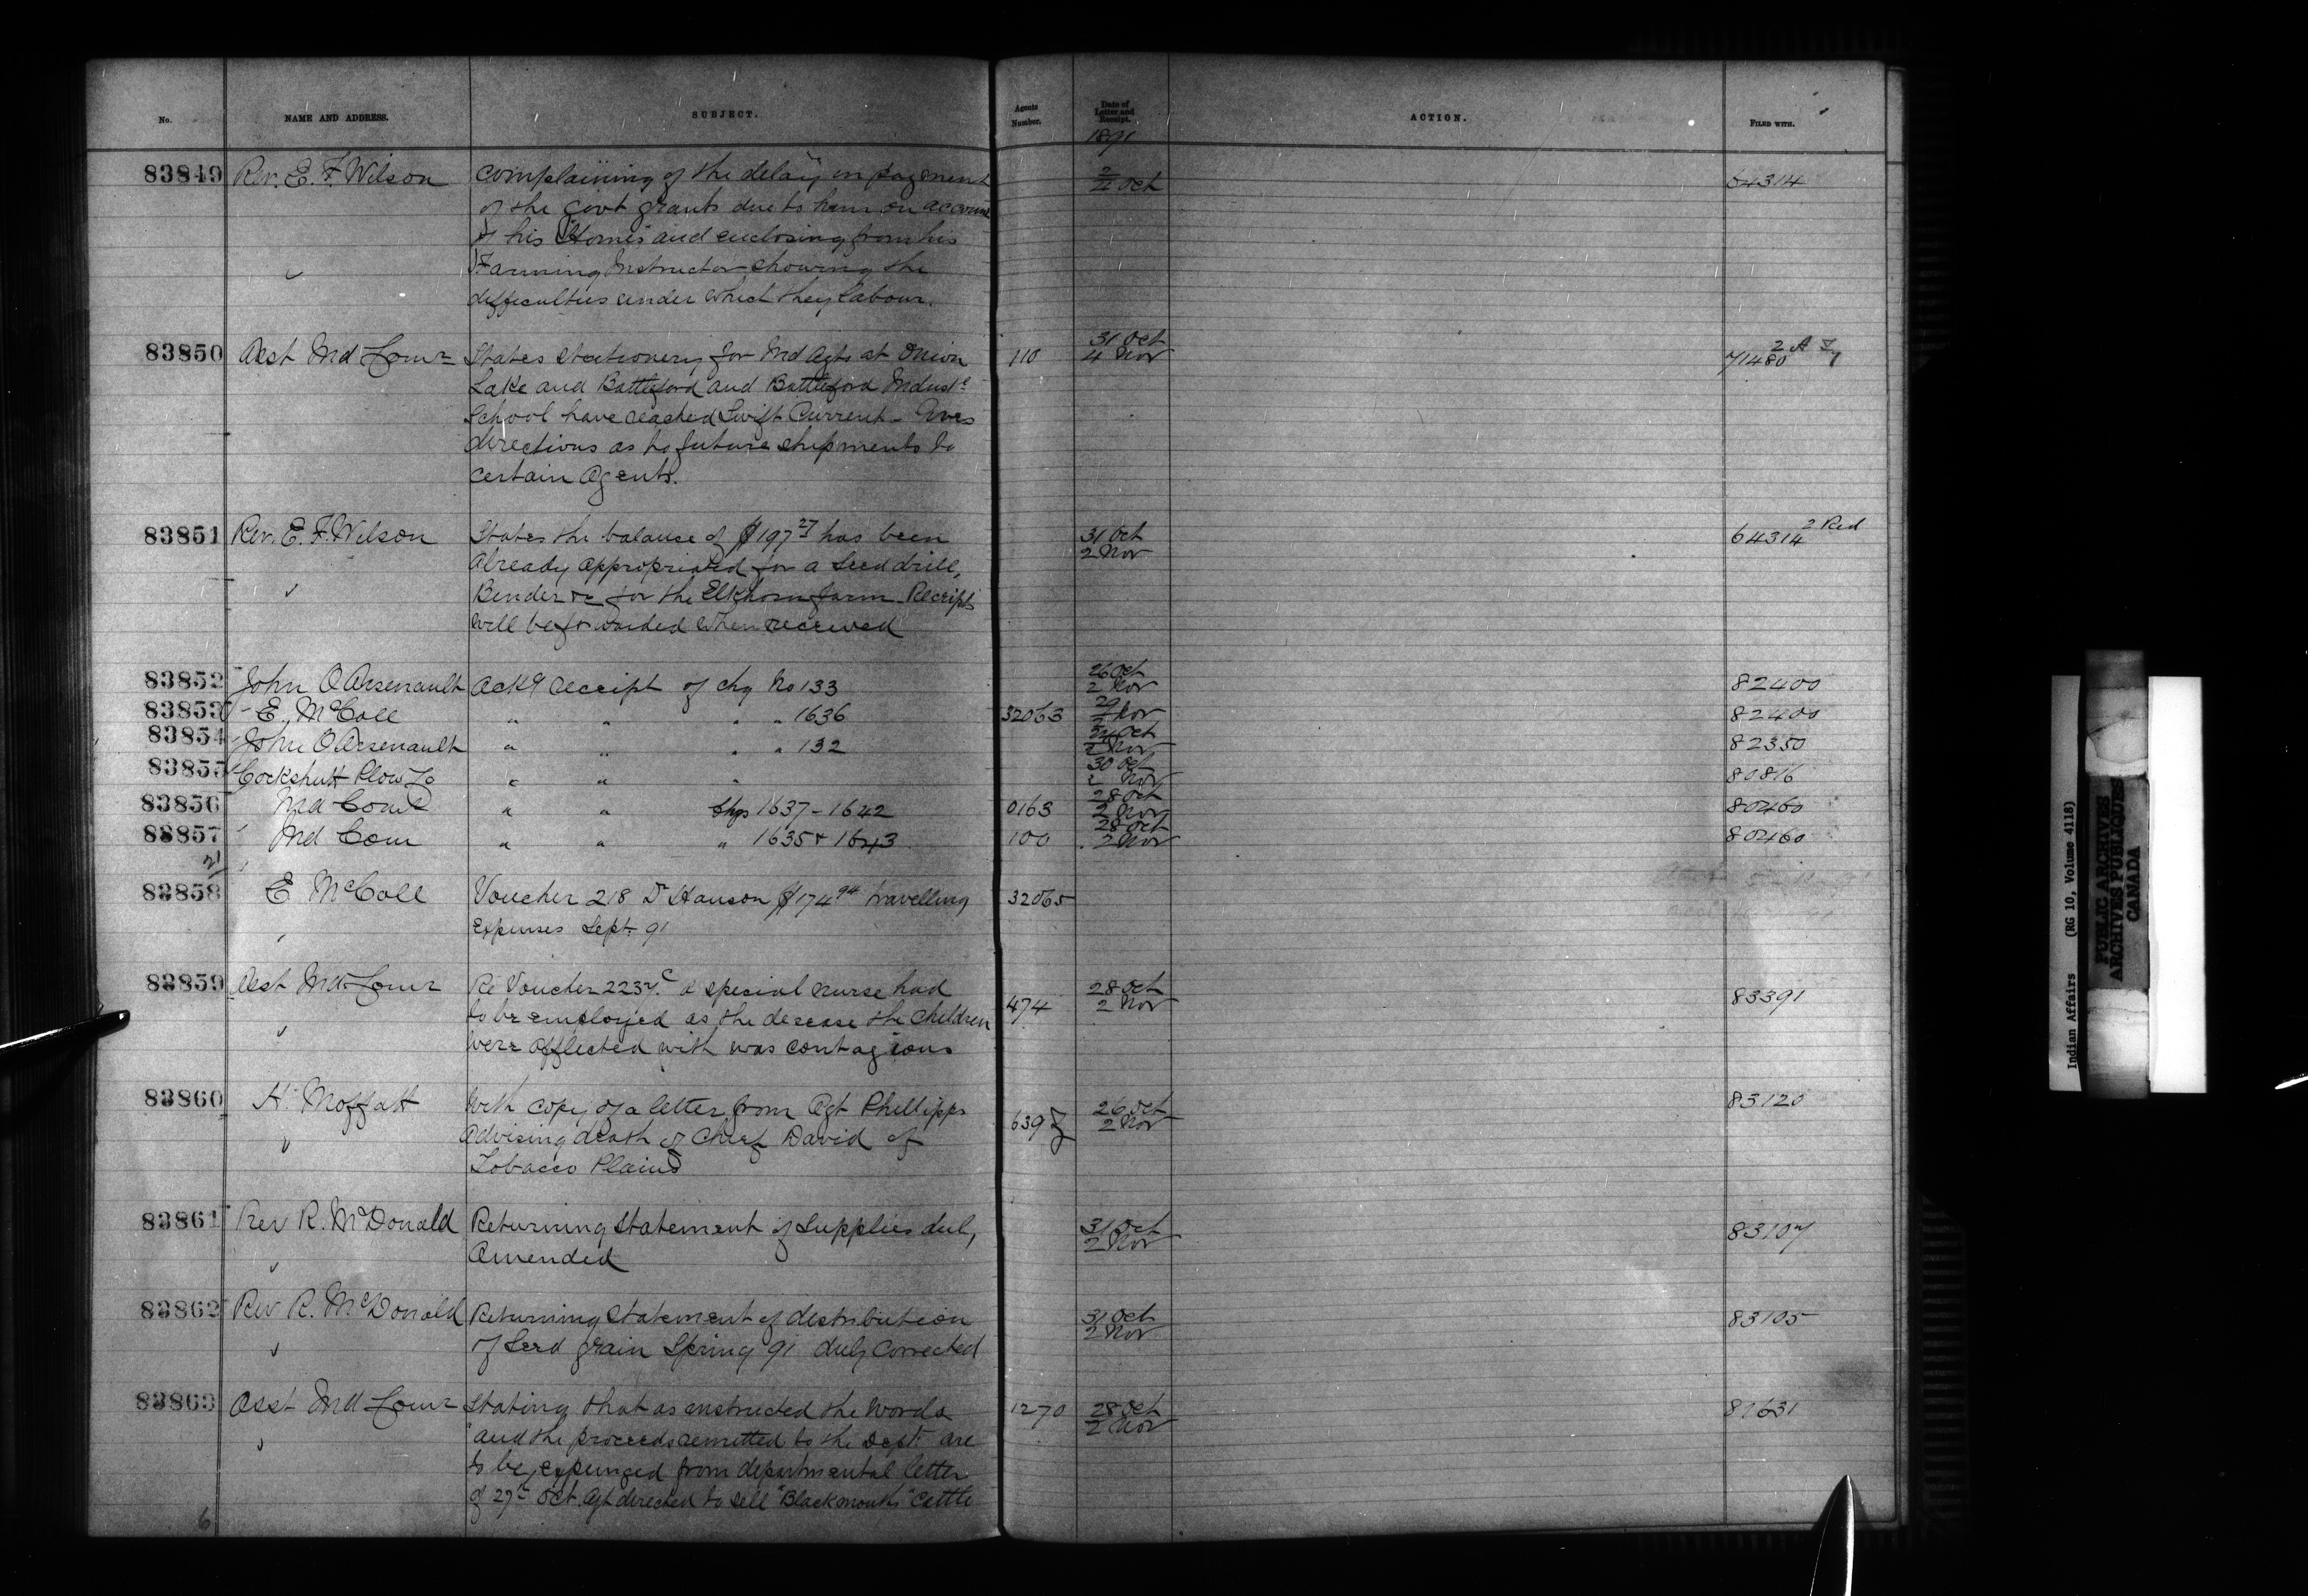 No. NAME AND ADDRESS. SUBJECT. Agents Number. Date of Letter and Receipt. ACTION. FILED WITH.
1891
83849 Rev. E. F. Wilson complaining of the delay in payment Oct 64314
of the Govt grants due to him on account
of his "Homes" and enclosing from his
Farming Instructor showing the
difficulties under which they labour.
83850 Asst Ind Comr States stationery for Ind Agts at Onion 110 31 Oct 4 Nov 71480 2 A
Lake and Battleford and Battleford Indust
School have reached Swift Current - Gives
directions as to future shipments to
certain Agents.
83851 Rev. E. F. Wilson States the balance of $197 27 has been 31 Oct 2 Nov 64314 2 Red
already appropriated for a seed drill,
Bender &c for the Elkhorn farm. Receipts
will be forwarded when received
83852 John O Arsenault Ackg receipt of chq No 133 26 Oct 2 Nov 82400
83853 E. McColl " " " " 1636 32063 29 Nov 82400
83854 John O Arsenault " " " " 132 Oct 2 Nov 82350
83855 Cockshutt Plow Co " " " 30 Oct 2 Nov 80816
83856 Ind Comr " " chqs 1637-1642 0163 28 Oct 2 Nov 80460
83857 Ind Com " " " 1635 & 1643 100 28 Oct 2 Nov 80460
83858 E McColl Voucher 218 Dr Hanson $174 94 travelling 32065
expenses Sept. 91
83859 Asst Ind Comr Re Voucher 2237 C a special nurse had 474 28 Oct 2 Nov 83391
to be employed as the desease the children
were afflected with was contagious
83860 H. Moffatt With copy of a letter from Agt Phillipps 639 26 Oct 2 Nov 83120
advising death of Chief David of
Tobacco Plains
83861 Rev R. McDonald Returning statement of supplies dul, 31 Oct 2 Nov 83107
Amended
83862 Rev R. McDonald Returning statement of distribution 31 Oct 2 Nov 83105
of seed grain Spring 91 duly corrected
83863 Asst Ind Comr Stating that as instructed the words 1270 28 Oct 2 Nov 81631
"and the proceeds remitted to the Dept" are
to be expunged from departmental letter
of 27th Oct. Agt directed to sell "Blackmouths" cattle
6
Indian Affairs (RG 10, Volume 4118)
PUBLIC ARCHIVES
ARCHIVES PUBLIQUES
CANADA